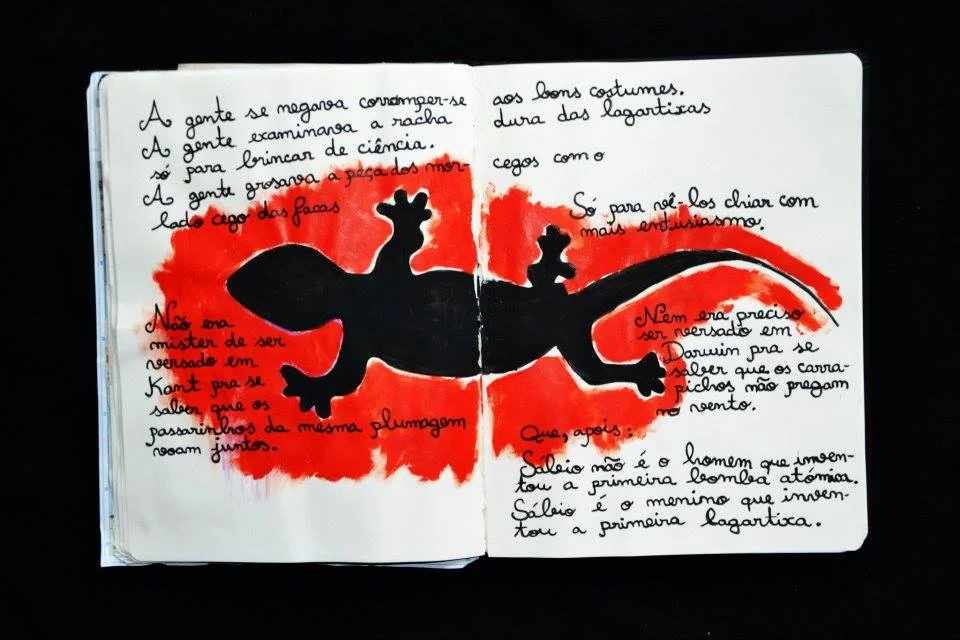 A gente se negava corromper-se aos bons costumes.
A gente examinava a racha dura das lagartixas
só para brincar de ciência.
A gente grosava a peça dos mor-cegos com o
lado cego das facas
Só para vê-los chiar com
mais entusiasmo.
Não era
mister de ser
versado em
Kant pra se
saber que os
passarinhos da mesma plumagem
voam juntos.
Nem era preciso
ser versado em
Darwin pra se
saber que os carra-
pichos não pregam
no vento.
Que, apois:
Sábio não é o homem que inven-
tou a primeira bomba atómica.
Sábio é o menino que inven-
tou a primeira lagartixa.